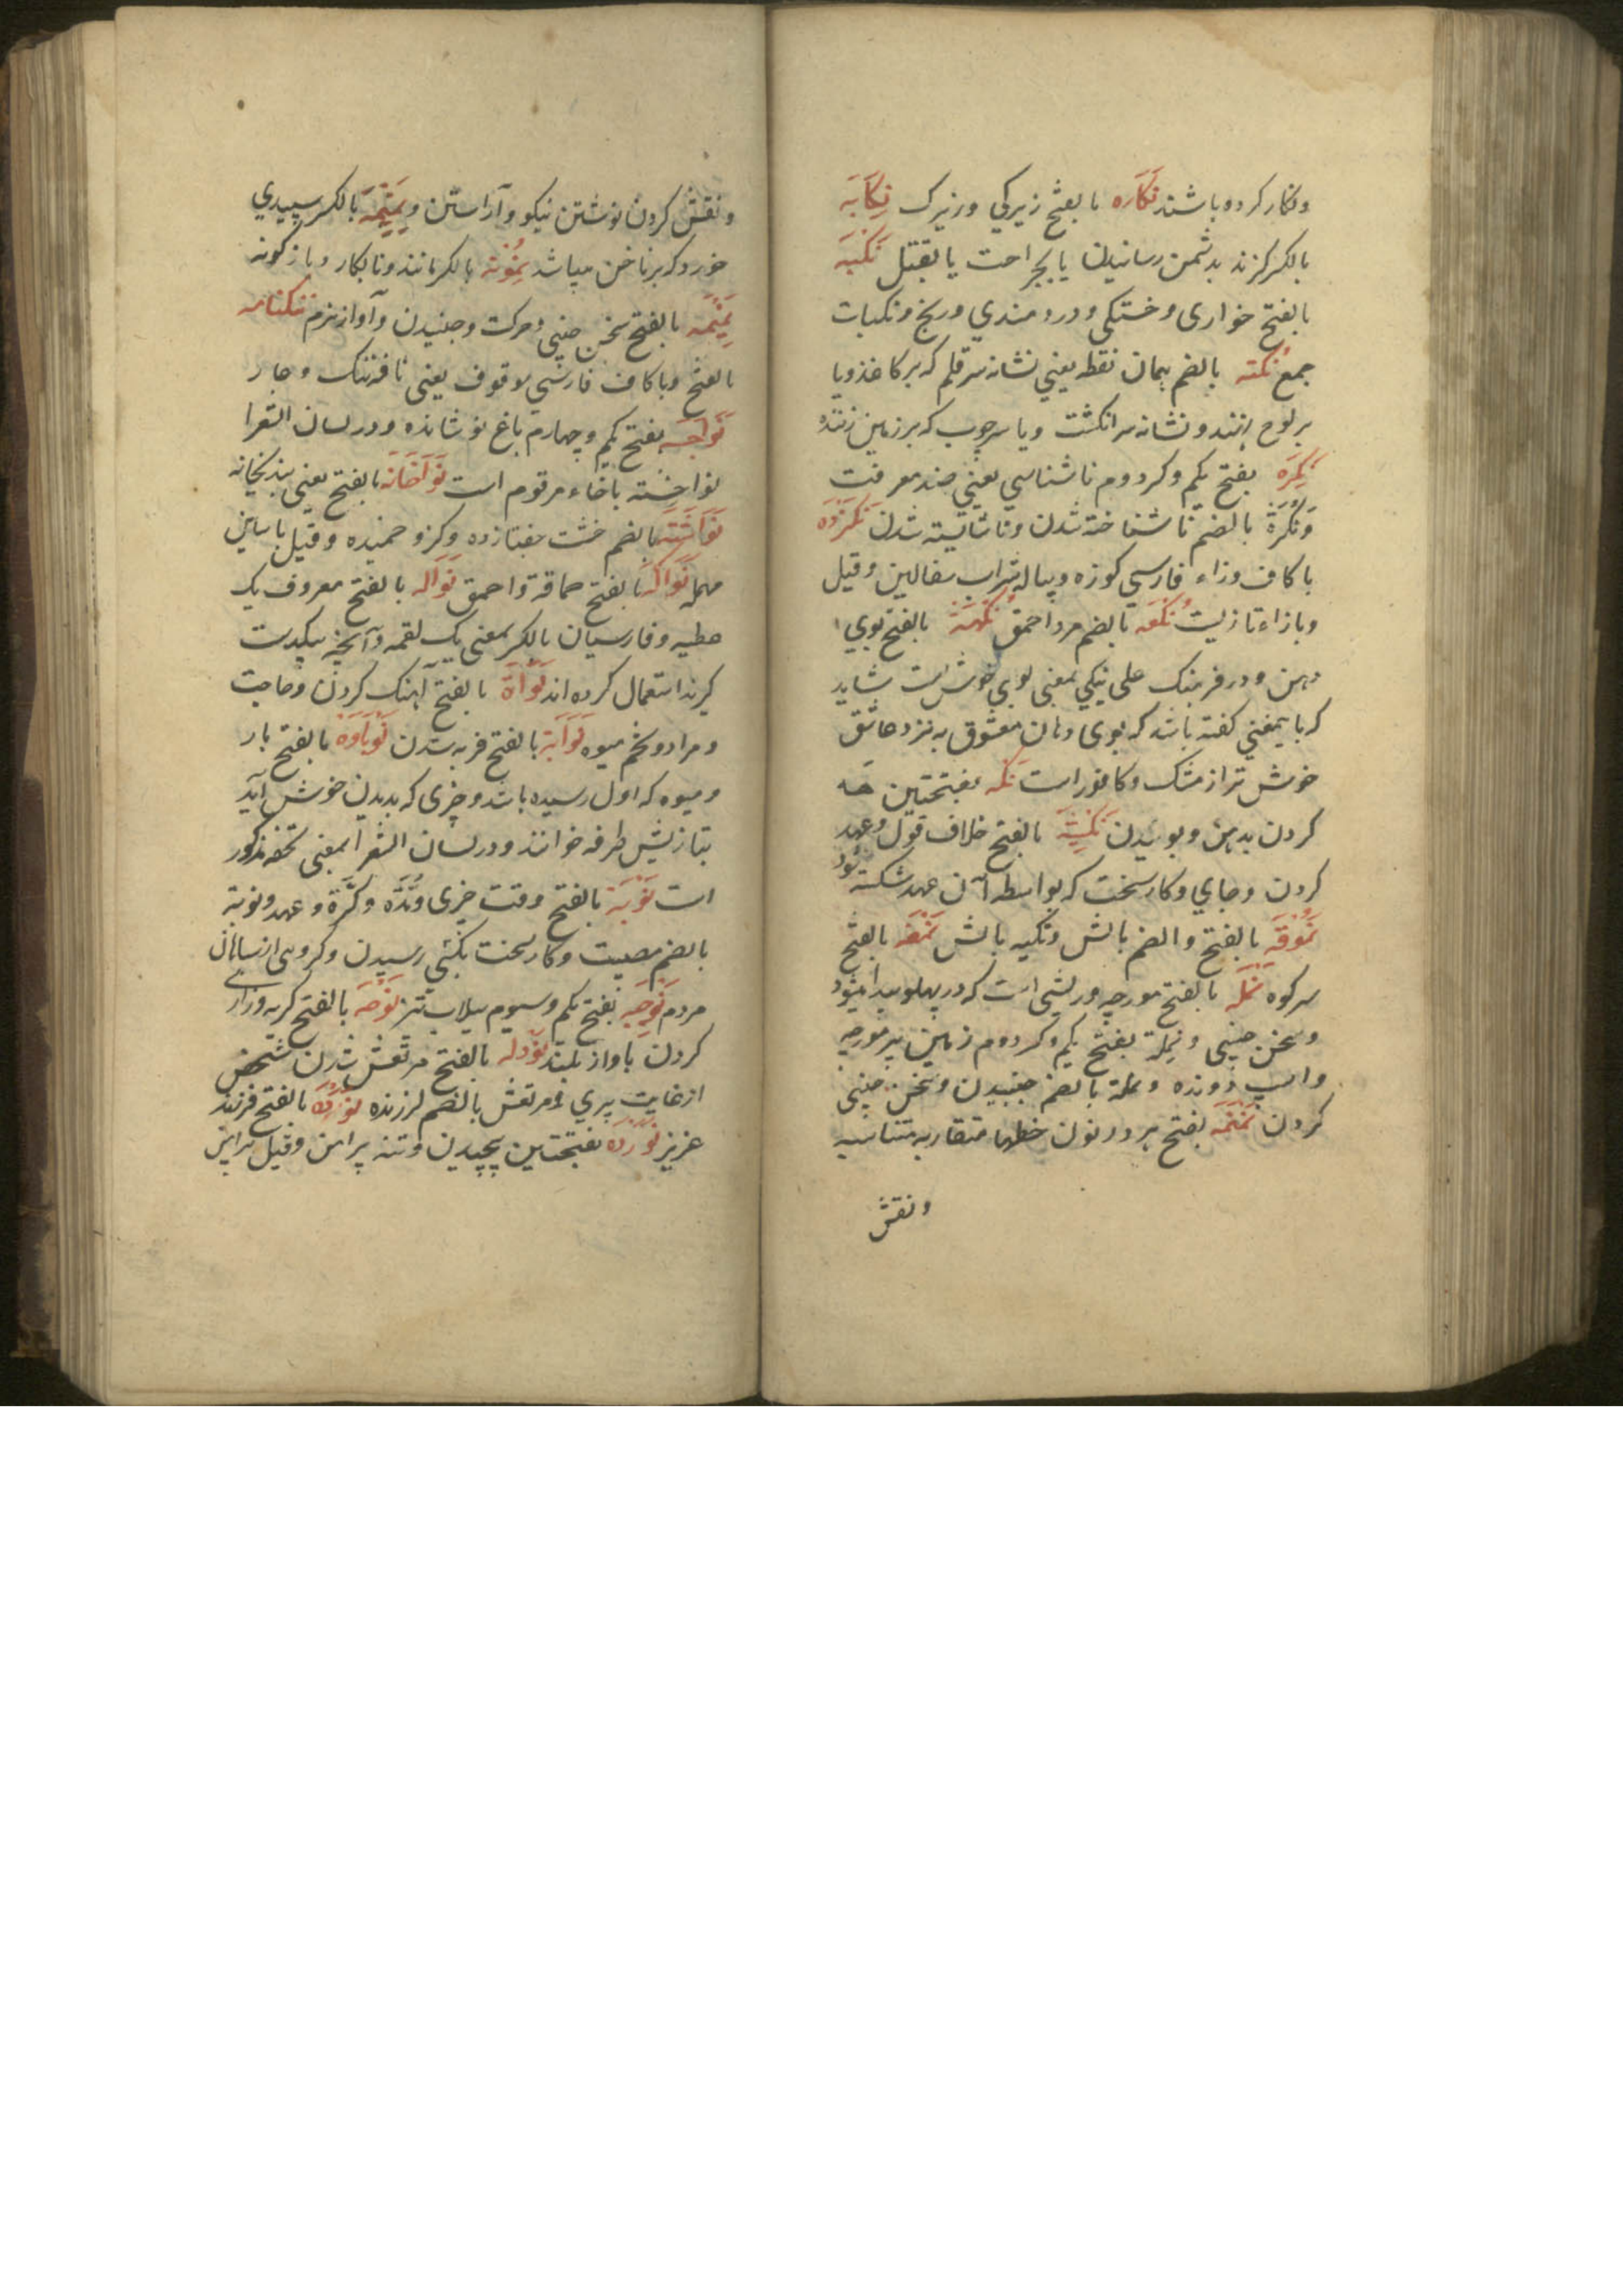 ونکار کرده باشند نَکَارَه بالفتح زیرکی و زیرک نِکَایَه
بالکسر کزند بدشمن رسانیدن یا بجراحت یا بقتل نَکبَه
بالفتح خواری و خستکی و دردمندی و رنج و نکبات
جمع نُکته بالضم همان نقطه یعني نشانه سر قلم که بر کاغذ و یا
بر لوح نهند و نشانه سر انکشت و یا سر چوب که بر زمین زنند
نَکِرَه بفتح یکم و کسر دوم ناشناسي یعني ضد معرفت
وَنُکرَة بالضم ناشناخته شدن و ناشایسته شدن
با کاف و زاء فارسي کوزه و پیاله شراب سفالین وقیل
و بازاء تازیست نُکعَه بالضم مرد احمق نَکهَة بالفتح بوي
دهن و در فرهنک علی نیکي بمعنی بوي خوش است شاید
که بایمعني کفته باشد که بوی دهان معشوق به نزد عاشق
خوش تر از مشک و کافور است نکه بفتحتین هه
کردن بدهن و بوئیدن نَکِیثَه بالفتح خلاف قول و عهد
کردن و جاي و کار سخت که بواسطه آن عهد شکسته شود
نَمرُقَه بالفتح والضم بالش و تکیه بالش بالفتح
سرکوه نَملَه بالفتح مورچه و ریشی است که در پهلو پیدا میشود
و سخن چینی و نَمِلَة بفتح یکم و کسر دوم زمین پر مورچه
و اسب دونده و نملة بالضم جنبیدن و سخن چینی
کردن نَمنَمَه بفتح هر دو نون خطها متقاربه متناسبه
ونقش
ونقش کردن نوشتن نیکو و آراستن و نِمنِمَه بالکسر سپیدي
خورد که بر ناخن میباشد نِمُونَه بالکسر مانند و نابکار و باز کونه
نَمِیمَه بالفتح سخن چینی و حرکت و جنبیدن و آواز نرم ننکنامه
بالفتح و با کاف فارسي موقوف یعنی نافه ننک و جار
نَوَاجَسَه بفتح یکم و چهارم باغ نو نشانده و در لسان الشعرا
نواخسته با خاء مرقوم است نَوَاخَانَه بالفتح یعنی بندیخانه
بالضم خشت هفتازده و کژ و خمیده وقیل باسین
مهمله نَوَاکَه بالفتح حماقة و احمق نَوَاله بالفتح معروف یک
عطیه و فارسیان بالکسر بمعنی یک لقمه و آنچه بیکدست
کیرند استعمال کرده اند نَوَاة بالفتح آهنک کردن و حاجت
و مراد و تخم میوه نَوَایَة بالفتح فربه شدن نَوبَاوَه بالفتح بار
و میوه که اول رسیده باشد و چیزی که بدیدن خوش آید
بتازیش طرفه خوانند و در لسان الشعرا بمعنی تحفه مذکور
است نَوبَة بالفتح وقت چیزی و نُدَّه و کَرَّة و عهد و نوبة
بالضم مصیبت و کار سخت بکسی رسیدن و کروهی از سیاهان
مردم نَوجَبه بفتح یکم و سیوم سیلاب تیز نَوحَه بالفتح کریه و زاری
کردن باواز بلند نَودله بالفتح مرتعش شدن شخص
از غایت پیري و مرتعش بالضم لرزنده نَورده بالفتح فرزند
عزیز نَوَردَه بفتحتین پیچیدن و تنه پیراهن وقیل پیراهن